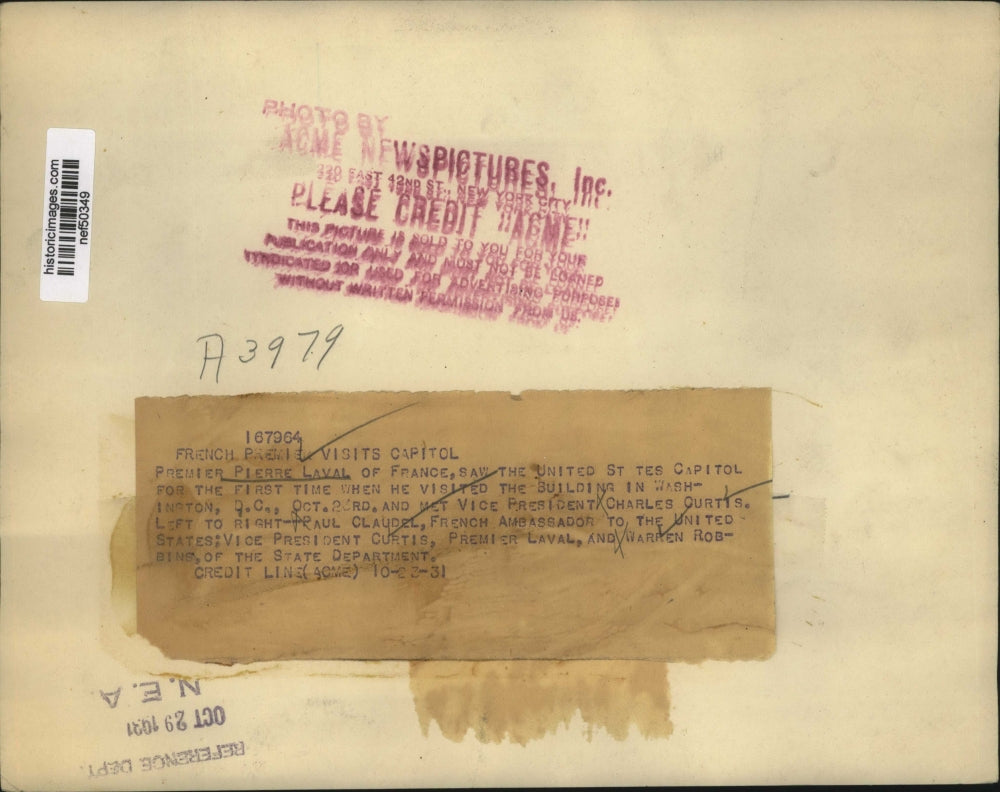 historicimages.com
nef50349
PHOTO BY
ACME NEWSPICTURES, Inc.
220 EAST 42ND ST., NEW YORK CITY
PLEASE CREDIT "ACME"
THIS PICTURE IS SOLD TO YOU FOR YOUR
PUBLICATION ONLY AND MUST NOT BE LOANED
SYNDICATED OR USED FOR ADVERTISING PURPOSES
WITHOUT WRITTEN PERMISSION FROM US.
A3979
167964
FRENCH PREMIER VISITS CAPITOL
PREMIER PIERRE LAVAL OF FRANCE, SAW THE UNITED ST TES CAPITOL
FOR THE FIRST TIME WHEN HE VISITED THE BUILDING IN WASH-
INGTON, D.C., OCT. 23RD. AND MET VICE PRESIDENT CHARLES CURTIS.
LEFT TO RIGHT- PAUL CLAUDEL, FRENCH AMBASSADOR TO THE UNITED
STATES; VICE PRESIDENT CURTIS, PREMIER LAVAL, AND WARREN ROB-
BINS, OF THE STATE DEPARTMENT.
CREDIT LINE (ACME) 10-23-31
N.E.A
OCT 29 1931
REFERENCE DEPT.